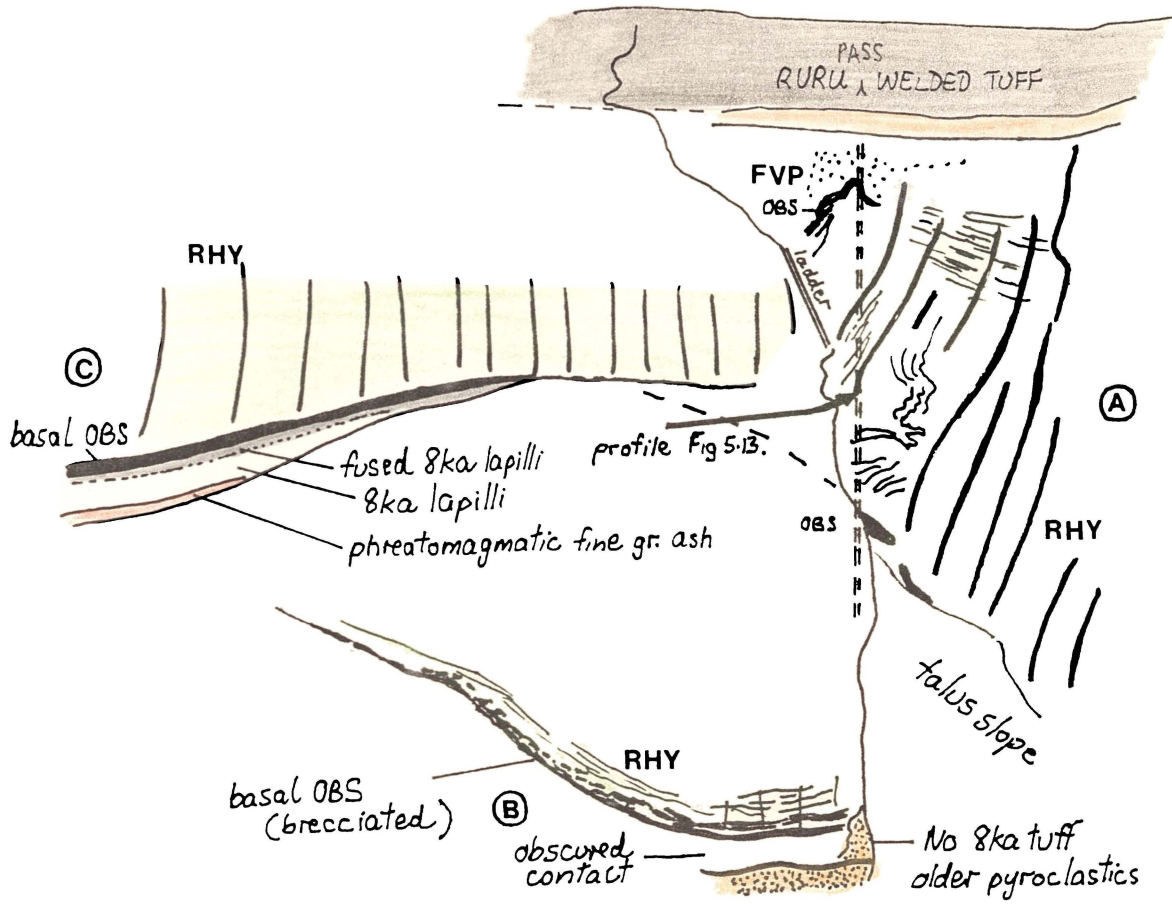 PASS
RURU ʌ WELDED TUFF
FVP
OBS
ladder
RHY
C
A
basal OBS
fused 8ka lapilli
8ka lapilli
phreatomagmatic fine gr. ash
profile Fig 5.13.
OBS
RHY
talus slope
RHY
basal OBS
(brecciated)
B
obscured
contact
No 8ka tuff
older pyroclastics